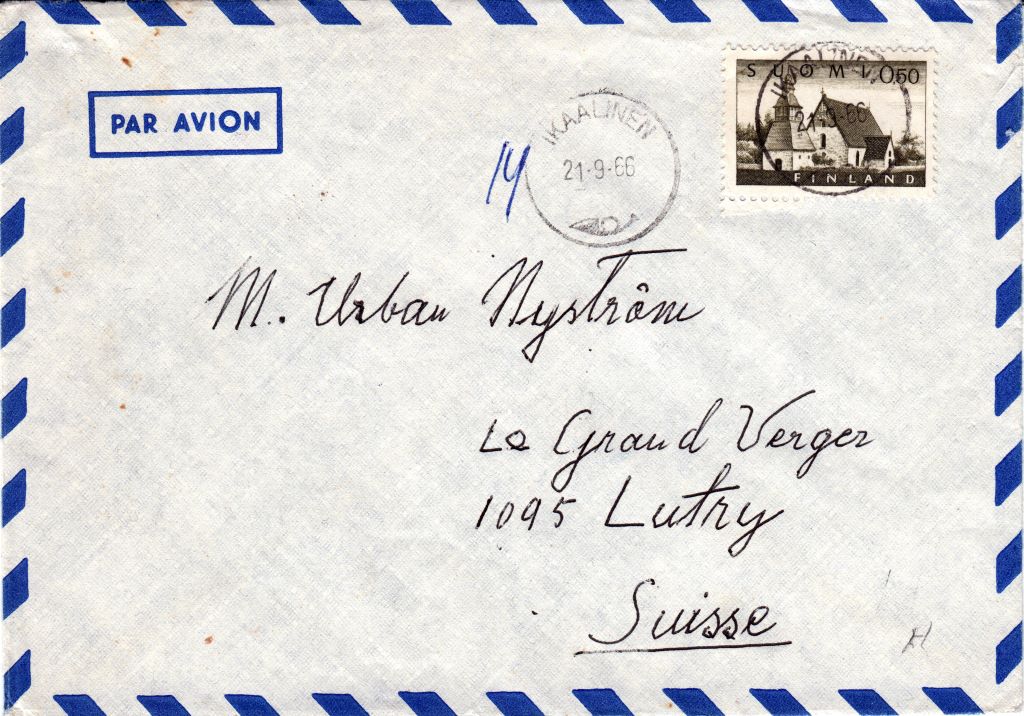 PAR AVION
IKAALINEN
21-9-66
SUOMI 0,50
IKAALINEN
21-9-66
FINLAND
14
M. Urban Nyström
Le Grand Verger
1095 Lutry
Suisse